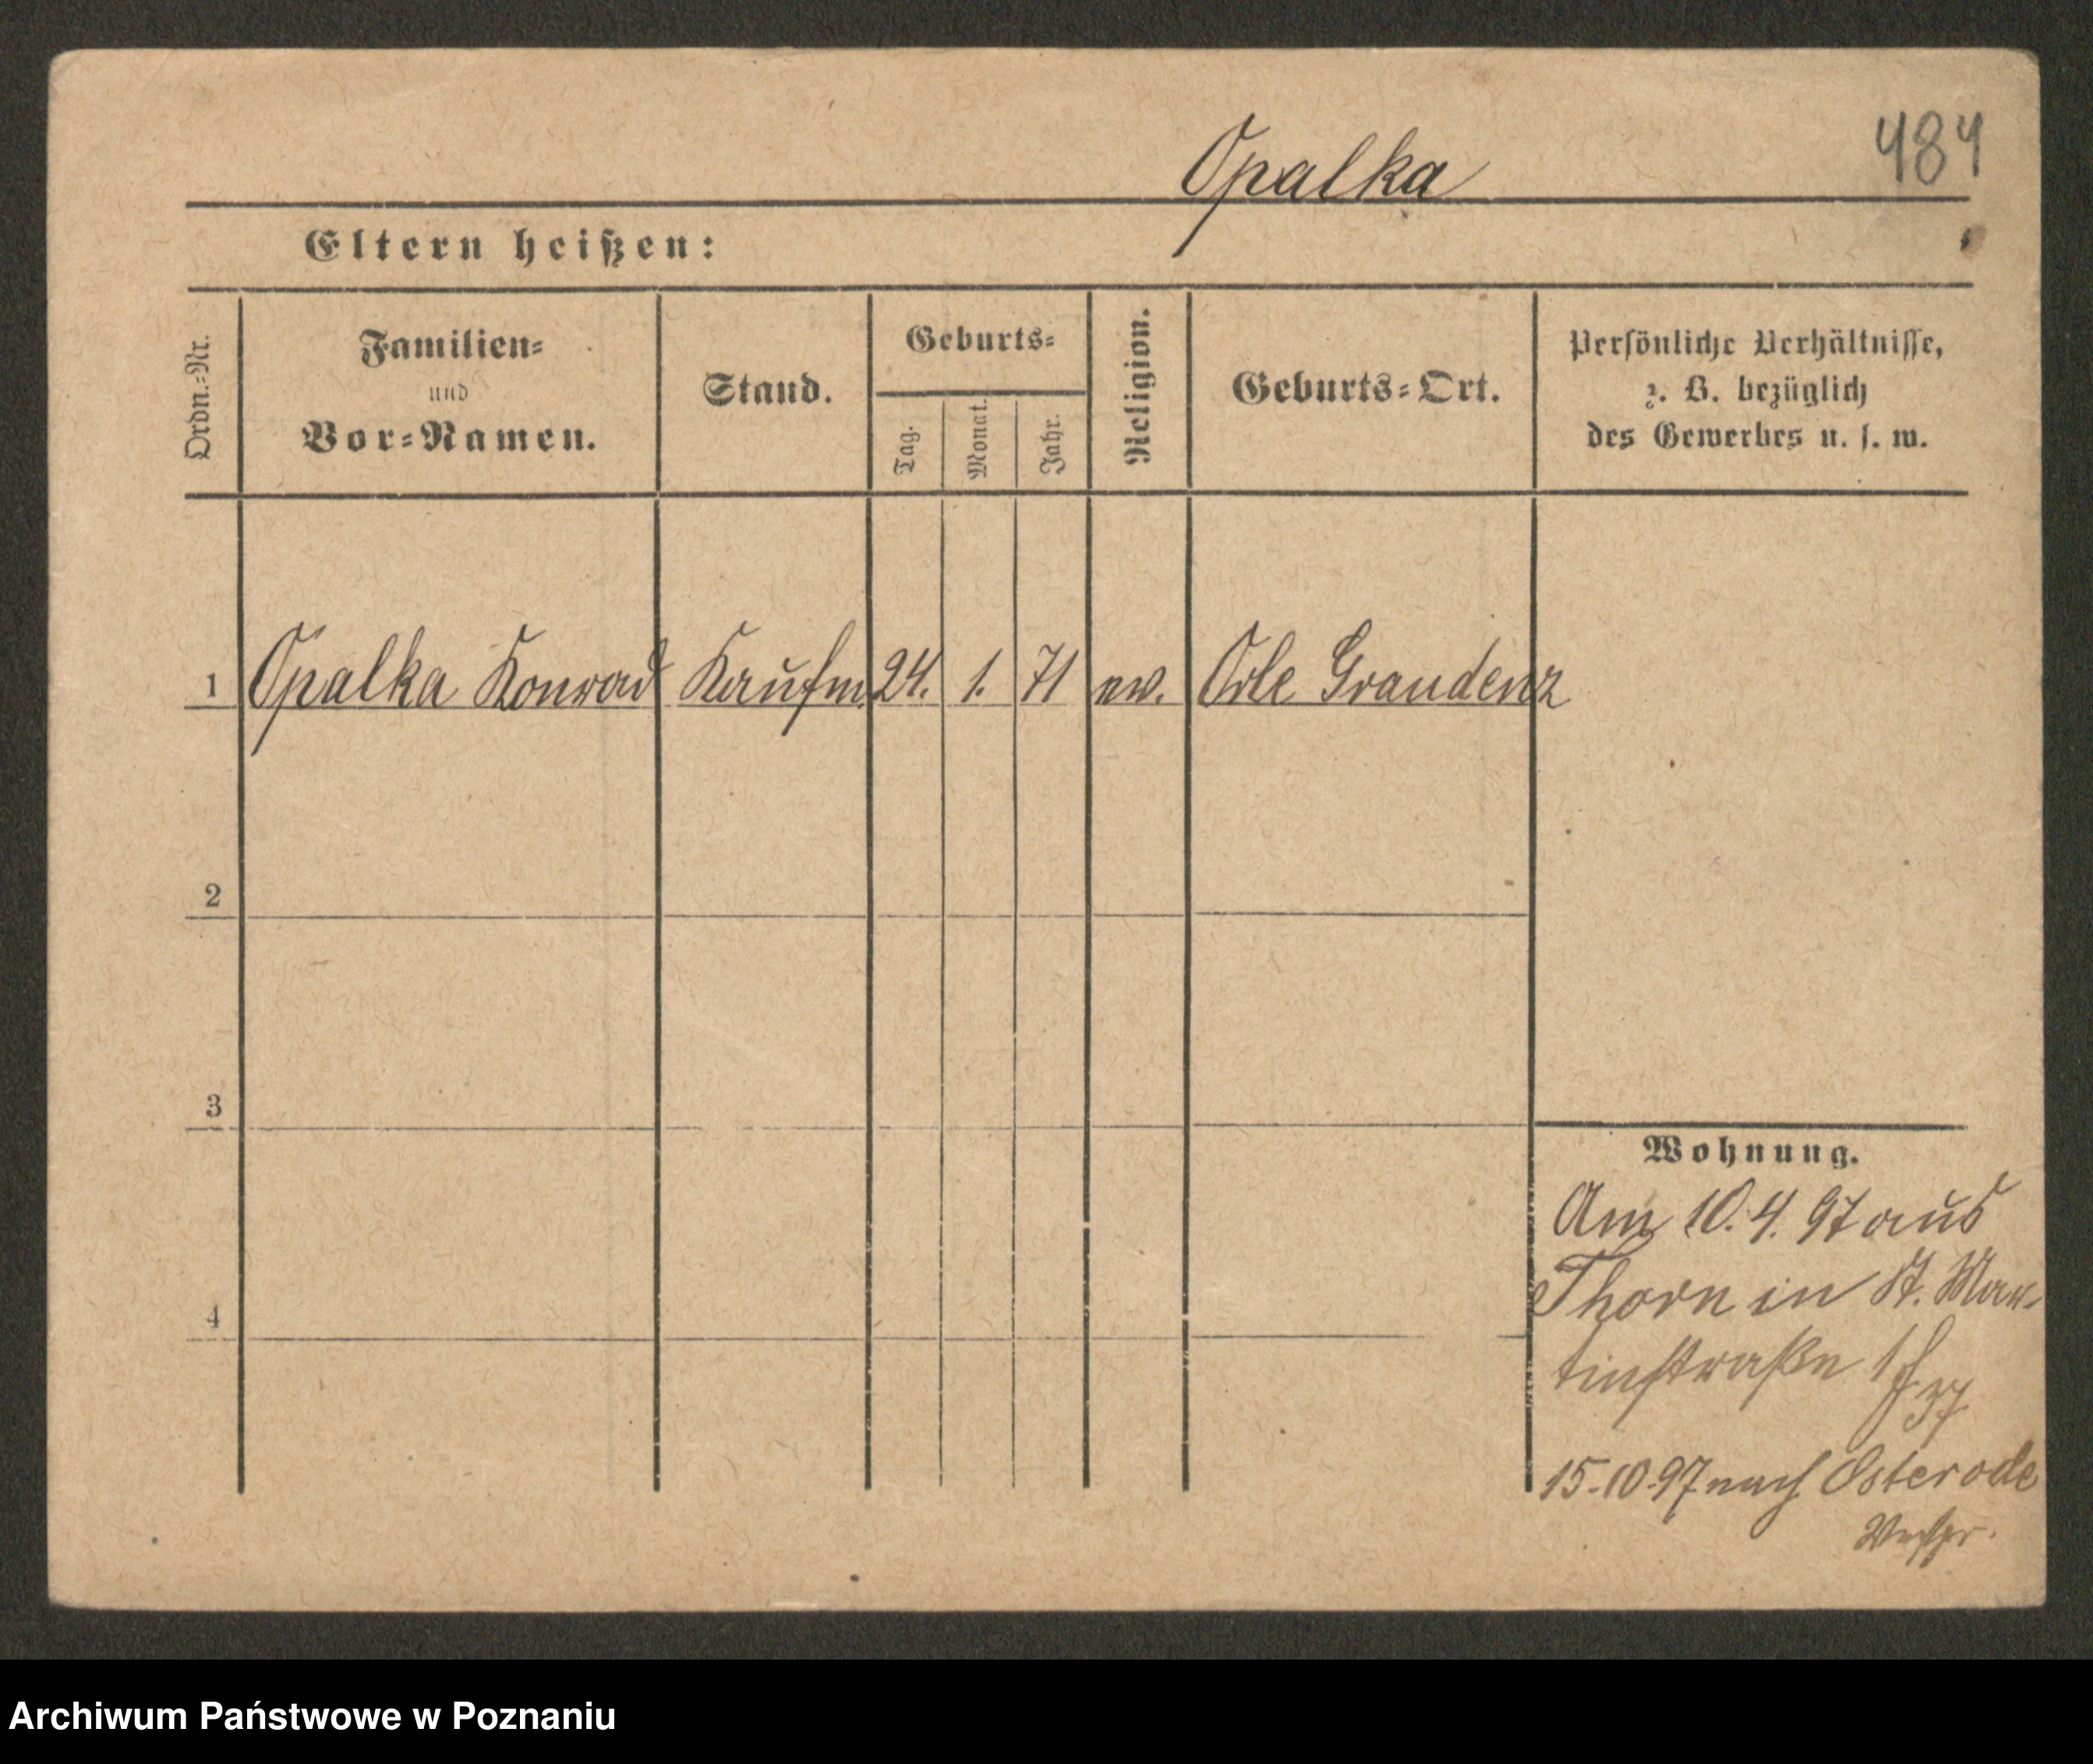 Opalka
484
Eltern heißen:
Ordn.=Nr.
Familien=
und
Vor=Namen.
Stand.
Geburts=
Tag.
Monat.
Jahr.
Religion.
Geburts=Ort.
Persönliche Verhältnisse,
z. B. bezüglich
des Gewerbes u. s. w.
1 Opalka Konrad Kaufm. 24. 1. 71 ev. Orle Graudenz
2
3
4
Wohnung.
Am 10.4.97 aus
Thorn in St. Mar-
tinstraße
15.10.97 nach Osterode
Archiwum Państwowe w Poznaniu